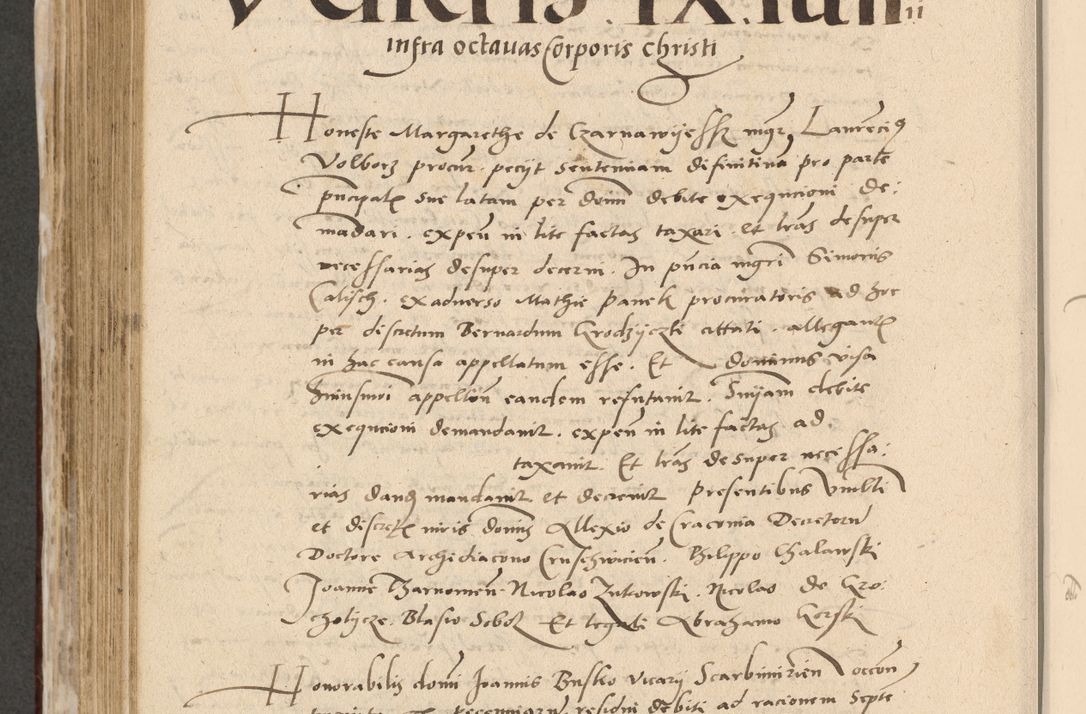 Veneris . ix . iunii
infra octavas Corporis christi
Honeste Margarethe de Czarnawijessk mgr Laurencius
Volborz procur . pecijt sentenciam difinitiva pro parte
pncipalis sue latam per domi debite exequcioni de:
madari . expen in lite factas taxari . et lras desuper
necessarias desuper decerni . In pncia mgri Simonis
Calisch . exadverso Mathie panek procuratoris ad hoc
per discretum Bernardum Grodzijczki cittati . allegantis
in hac causa appellatum esse . Et dominus visa
huiusmodi appellon eandem refutavit . Snijam debite
exequcioni demandavit . expen in lite factas ad
taxavit . Et lras desuper necessa:
rias dandas mandavit et decrevit presentibus Venlli
et discretis viris dominis Allexio de Cracovia Decretorum
Doctore Archidiacono Cruschwicien . Philippo Chalawski
Joanne Tharnowen . Nicolao Zukowski . Nicolao de Gro:
cholijcze . Blasio Sobol Et legate Abrahamo Gorski
Honorabilis domi Joannis Busko vicarij Scarbimirien occon
recennciarum residui debiti ad racionem Septe